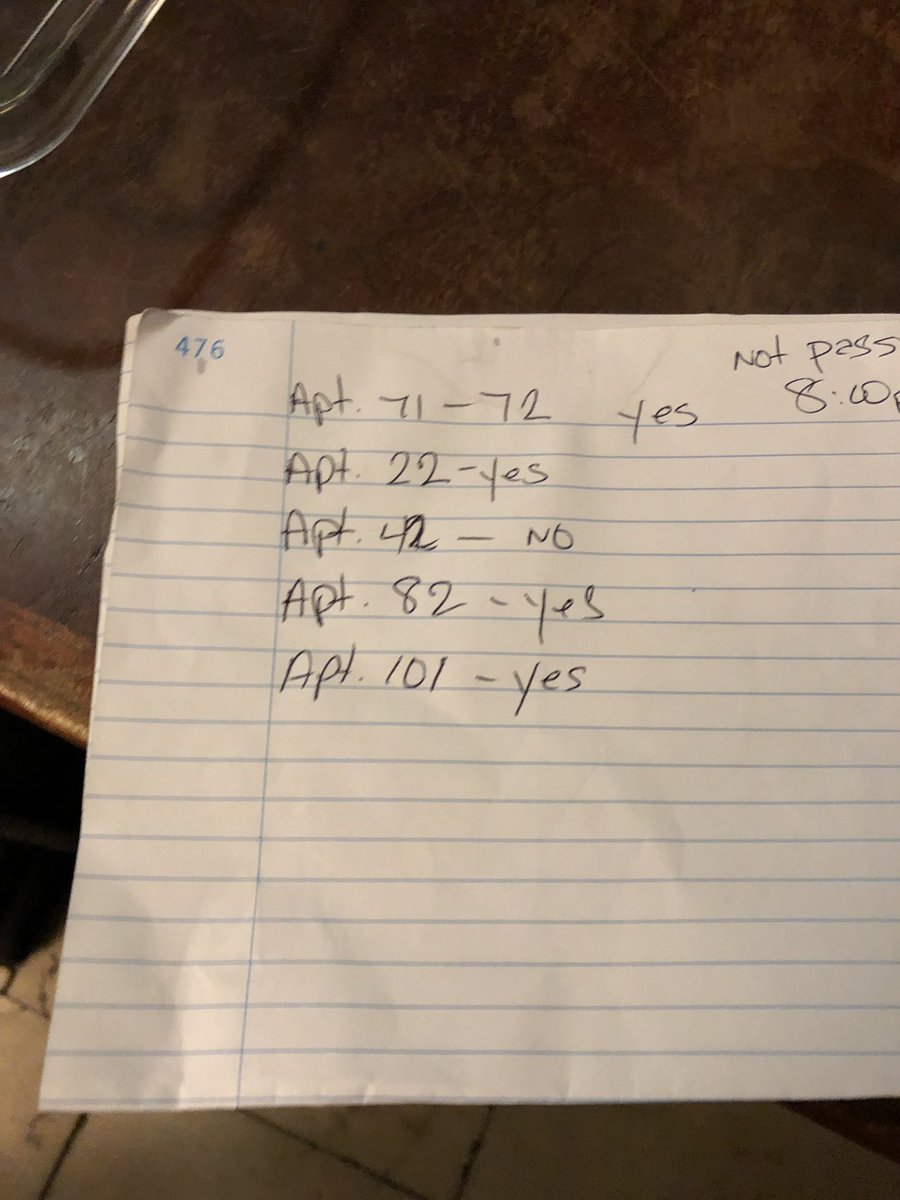 476
Not pass
8:00p
Apt. 71-72 yes
Apt. 22-yes
Apt. 42 - NO
Apt. 82 - yes
Apt. 101 - yes